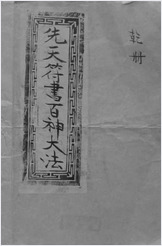 乾册
先天符書百神大法